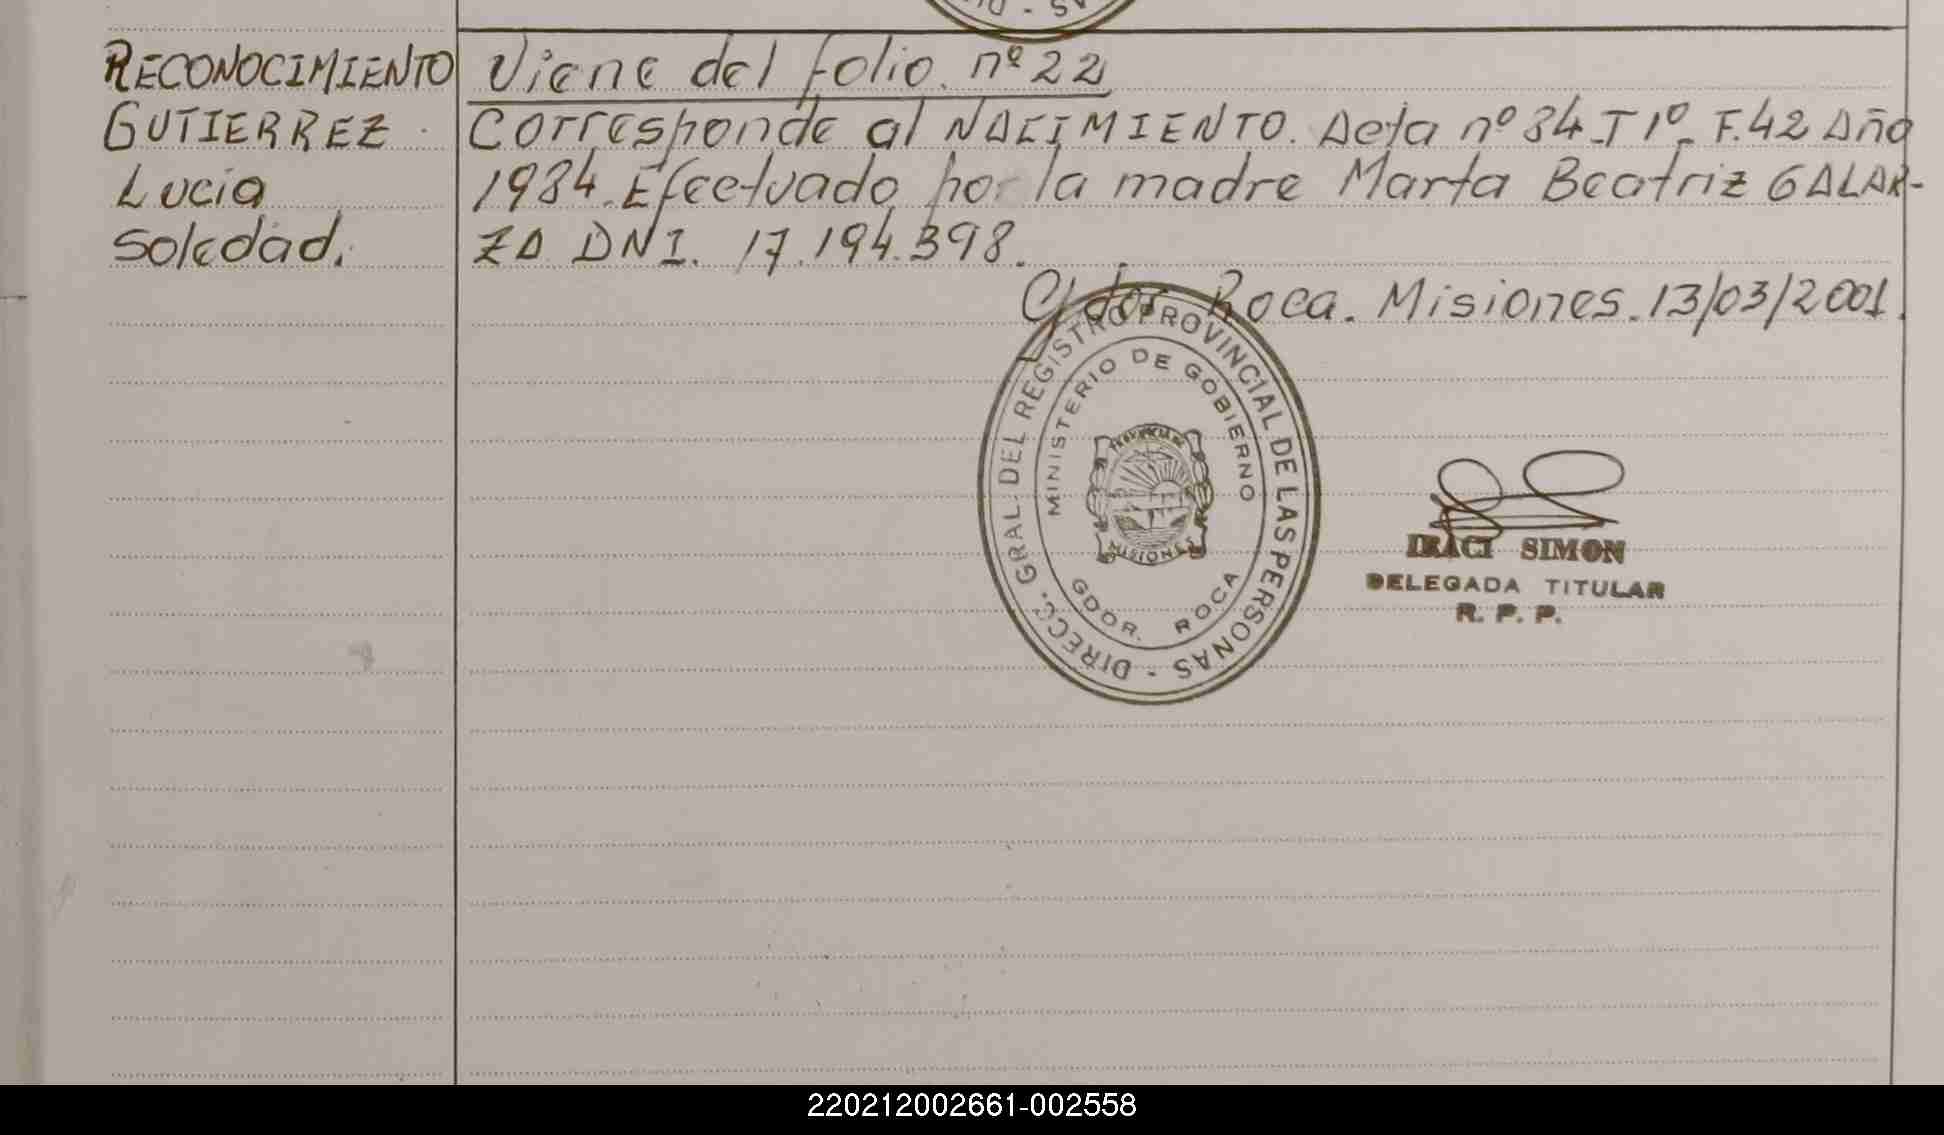 AS - DI
RECONOCIMIENTO
GUTIERREZ
Lucía
Soledad.
Viene del folio. nº 22
Corresponde al NACIMIENTO. Acta nº 84_T 1º_ F.42 Año
1984. Efectuado por la madre Marta Beatriz GALAR-
ZA DNI. 17.194.398.
Gdor Roca. Misiones. 13/03/2001.
DIRECC. GRAL. DEL REGISTRO PROVINCIAL DE LAS PERSONAS -
MINISTERIO DE GOBIERNO
PROVINCIA DE
MISIONES
GDOR. ROCA
IRACI SIMON
DELEGADA TITULAR
R. P. P.
220212002661-002558